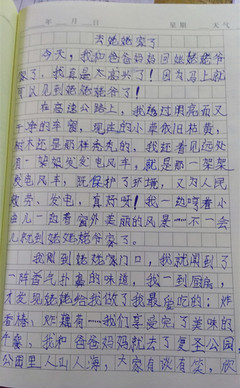 年 月 日 星期 天气
去姥姥家了
今天，我和爸爸妈妈回姥姥姥爷
家了，我真是太高兴了！因为马上就
可以见到姥姥姥爷了！
在高速公路上，我透过明亮而又
干净的车窗，现在的小草依旧枯黄，
树木还是那样秃秃的，我还看见远处
有一架架发电风车，就是那一架架
发电风车，既保护了环境，又为人民
服务，发电，真师呀！我一边哼着小
曲儿一边看窗外美丽的风景……不一会
儿就到姥姥姥爷家了。
我刚到姥姥家门口，我就闻到了
一阵香气扑鼻的味道，我一到厨房，
才发见姥姥给我做了我最爱吃的：炸
香椿，炸藕荷……我们享受完了美味的
午餐，我和爸爸妈妈就去了复圣公园
公园里人山人海，大家有谈有笑，欣